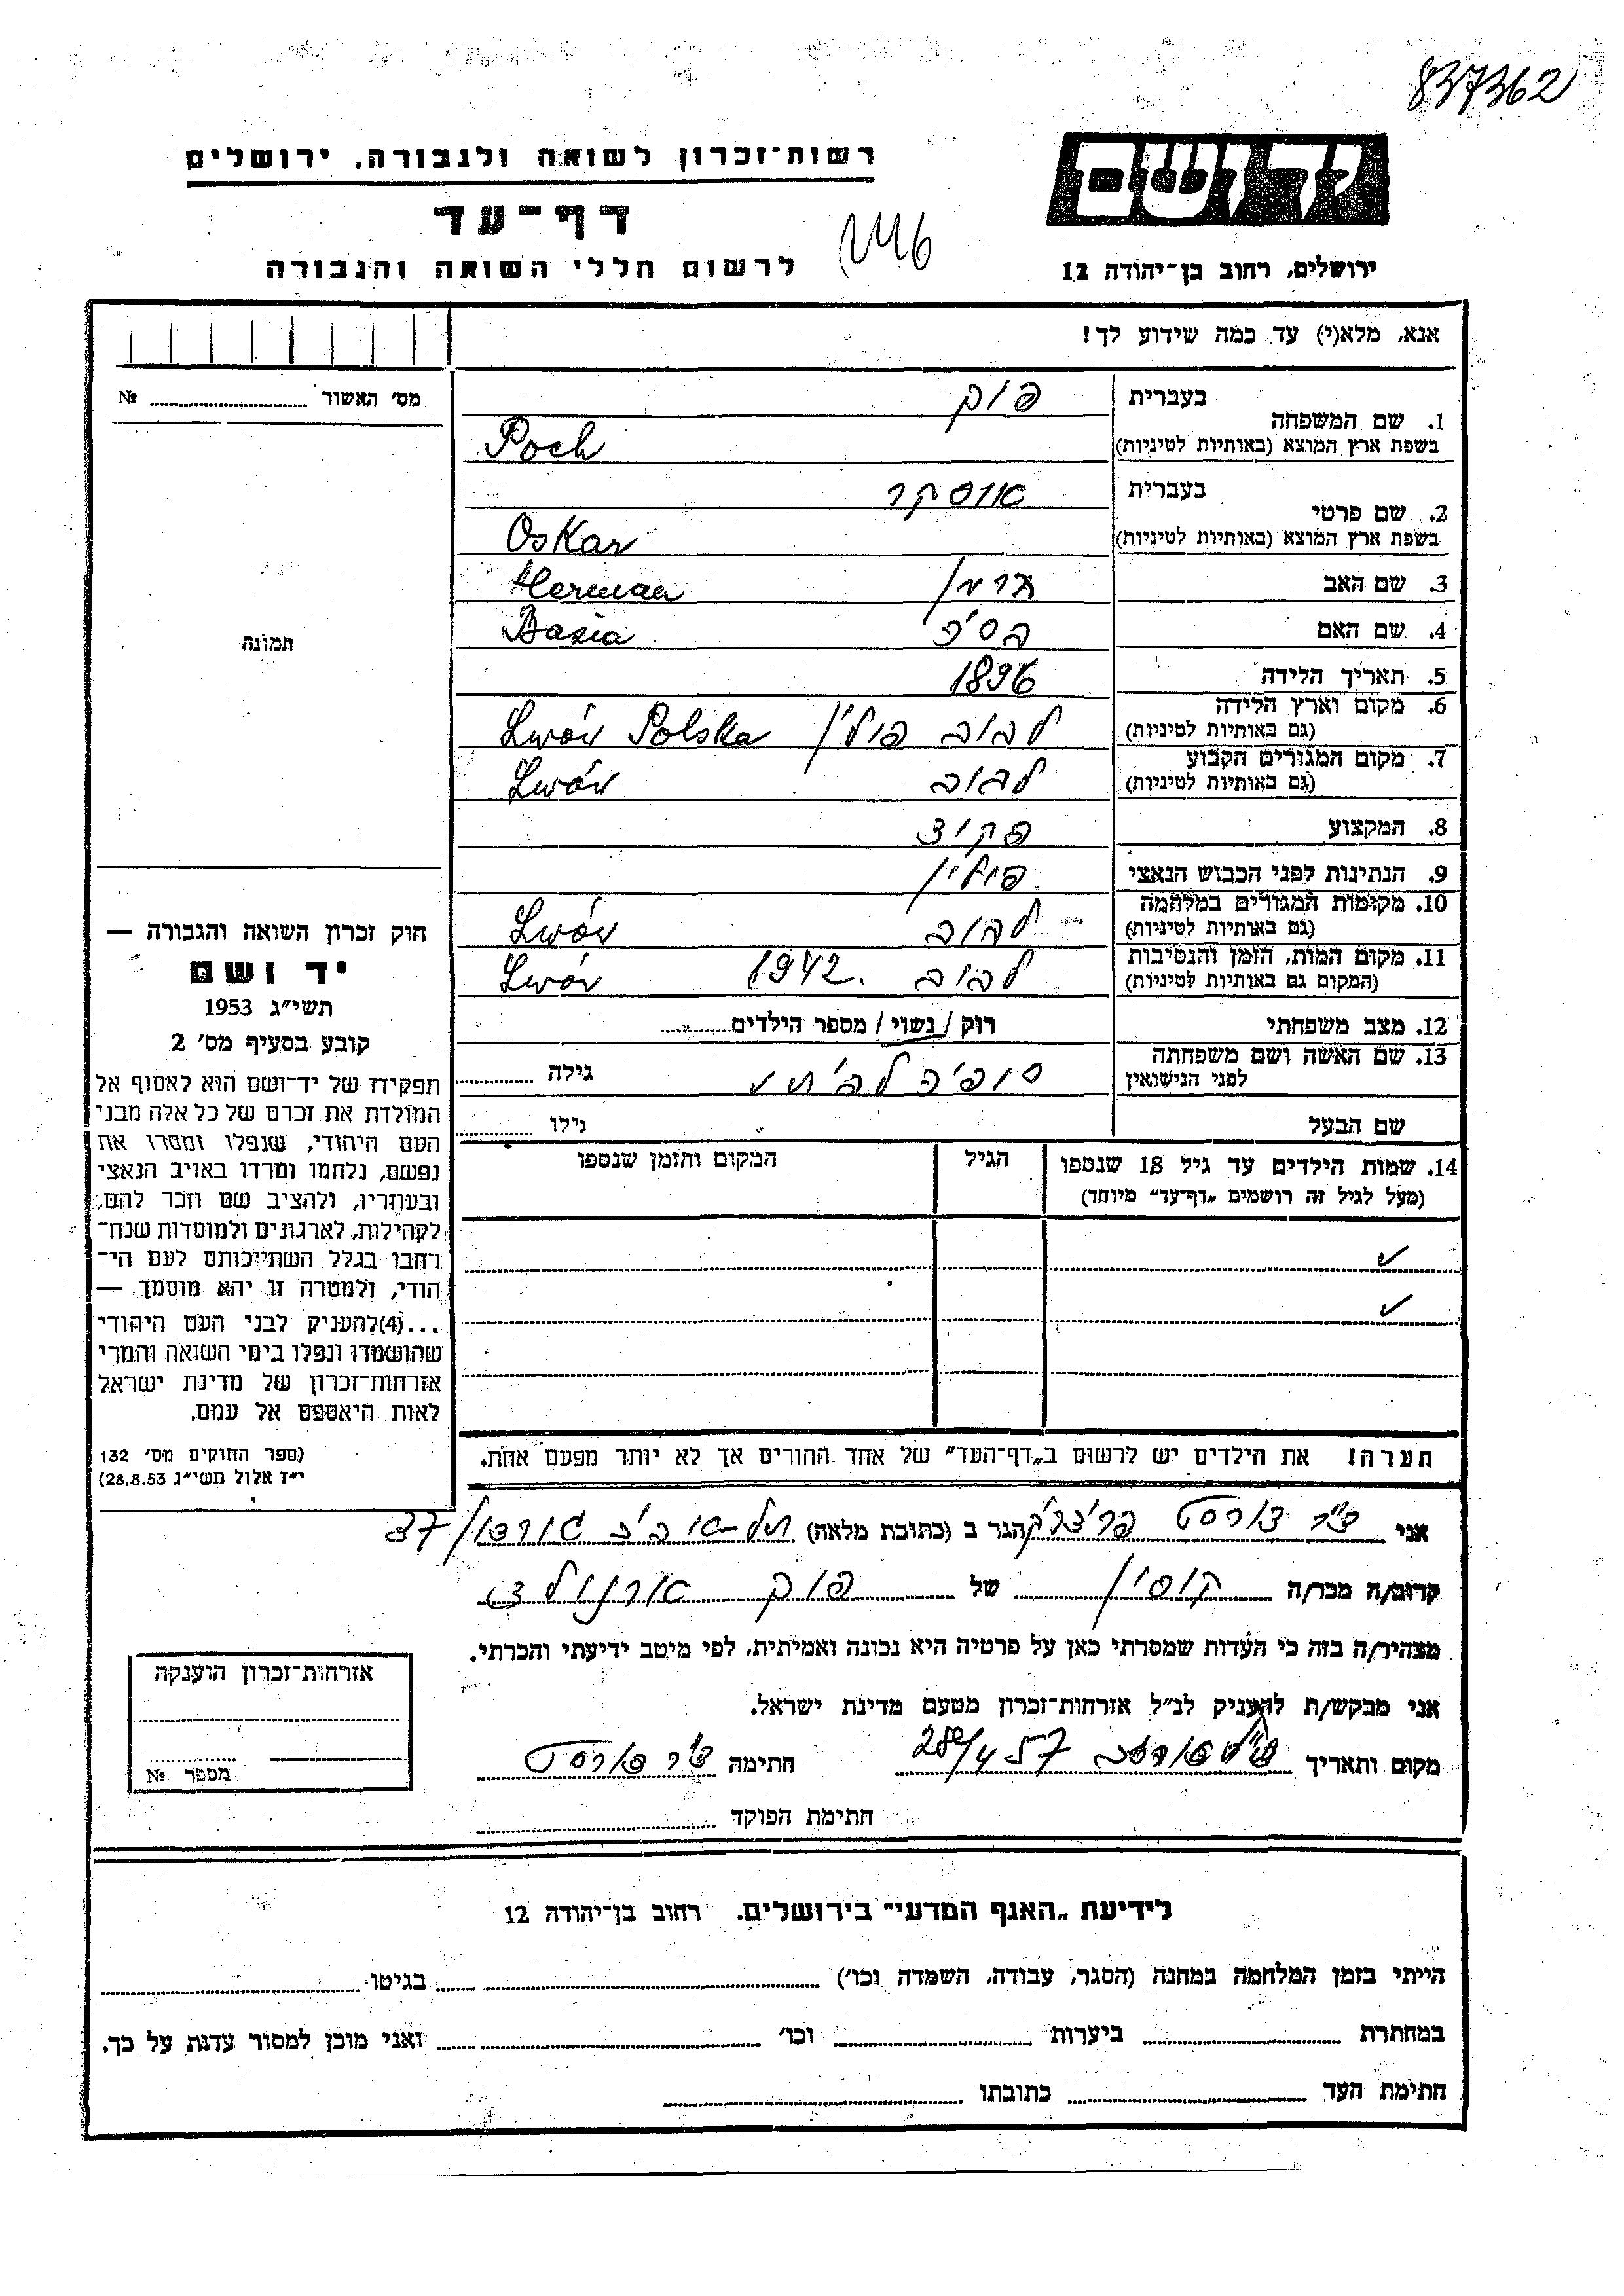 837362
יד ושם
רשות־זכרון לשואה ולגבורה, ירושלים
דף־עד
לרשום חללי השואה והגבורה
ירושלים, רחוב בן־יהודה 12
אנא, מלא(י) עד כמה שידוע לך!
מס׳ האשור № 
1. שם המשפחה
בעברית פוק
בשפת ארץ המוצא (באותיות לטיניות) Poch
2. שם פרטי
בעברית אוסקר
בשפת ארץ המוצא (באותיות לטיניות) Oskar
3. שם האב הרמן Herman
4. שם האם בסיה Basia
5. תאריך הלידה 1896
6. מקום וארץ הלידה לבוב פולין Lwów Polska
(גם באותיות לטיניות)
7. מקום המגורים הקבוע לבוב Lwów
(גם באותיות לטיניות)
8. המקצוע פקיד
9. הנתינות לפני הכבוש הנאצי פולין
10. מקומות המגורים במלחמה לבוב Lwów
(גם באותיות לטיניות)
11. מקום המות, הזמן והנסיבות לבוב 1942. Lwów
(המקום גם באותיות לטיניות)
12. מצב משפחתי רוק / נשוי / מספר הילדים
13. שם האשה ושם משפחתה סופיה גילה
לפני הנישואין
שם הבעל גילו
14. שמות הילדים עד גיל 18 שנספו הגיל המקום והזמן שנספו
(מעל לגיל זה רושמים „דף־עד” מיוחד)
תמונה
חוק זכרון השואה והגבורה —
יד ושם
תשי״ג 1953
קובע בסעיף מס׳ 2
תפקידו של יד־ושם הוא לאסוף אל
המולדת את זכרם של כל אלה מבני
העם היהודי, שנפלו ומסרו את
נפשם, נלחמו ומרדו באויב הנאצי
ובעוזריו, ולהציב שם וזכר להם,
לקהילות, לארגונים ולמוסדות שנח־
רחבו בגלל השתייכותם לעם הי־
הודי, ולמטרה זו יהא מוסמך —
...(4)להעניק לבני העם היהודי
שהושמדו ונפלו בימי השואה והמרי
אזרחות־זכרון של מדינת ישראל
לאות היאספם אל עמם.
(ספר החוקים מס׳ 132
י״ז אלול תשי״ג 28.8.53)
הערה! את הילדים יש לרשום ב„דף־העד” של אחד ההורים אך לא יותר מפעם אחת.
אני ד״ר הגר ב (כתובת מלאה) תל-אביב גורדון 37
קרוב/ה מכר/ה קוסין של פוק ארנולד
מצהיר/ה בזה כי העדות שמסרתי כאן על פרטיה היא נכונה ואמיתית, לפי מיטב ידיעתי והכרתי.
אני מבקש/ת להעניק לנ״ל אזרחות־זכרון מטעם מדינת ישראל.
מקום ותאריך חתימה ד״ר
חתימת הפוקד
אזרחות־זכרון הוענקה
מספר №
לידיעת „האגף המדעי” בירושלים. רחוב בן־יהודה 12
הייתי בזמן המלחמה במחנה (הסגר, עבודה, השמדה וכו׳) בגיטו
במחתרת ביערות וכו׳ ואני מוכן למסור עדות על כך.
חתימת העד כתובתו